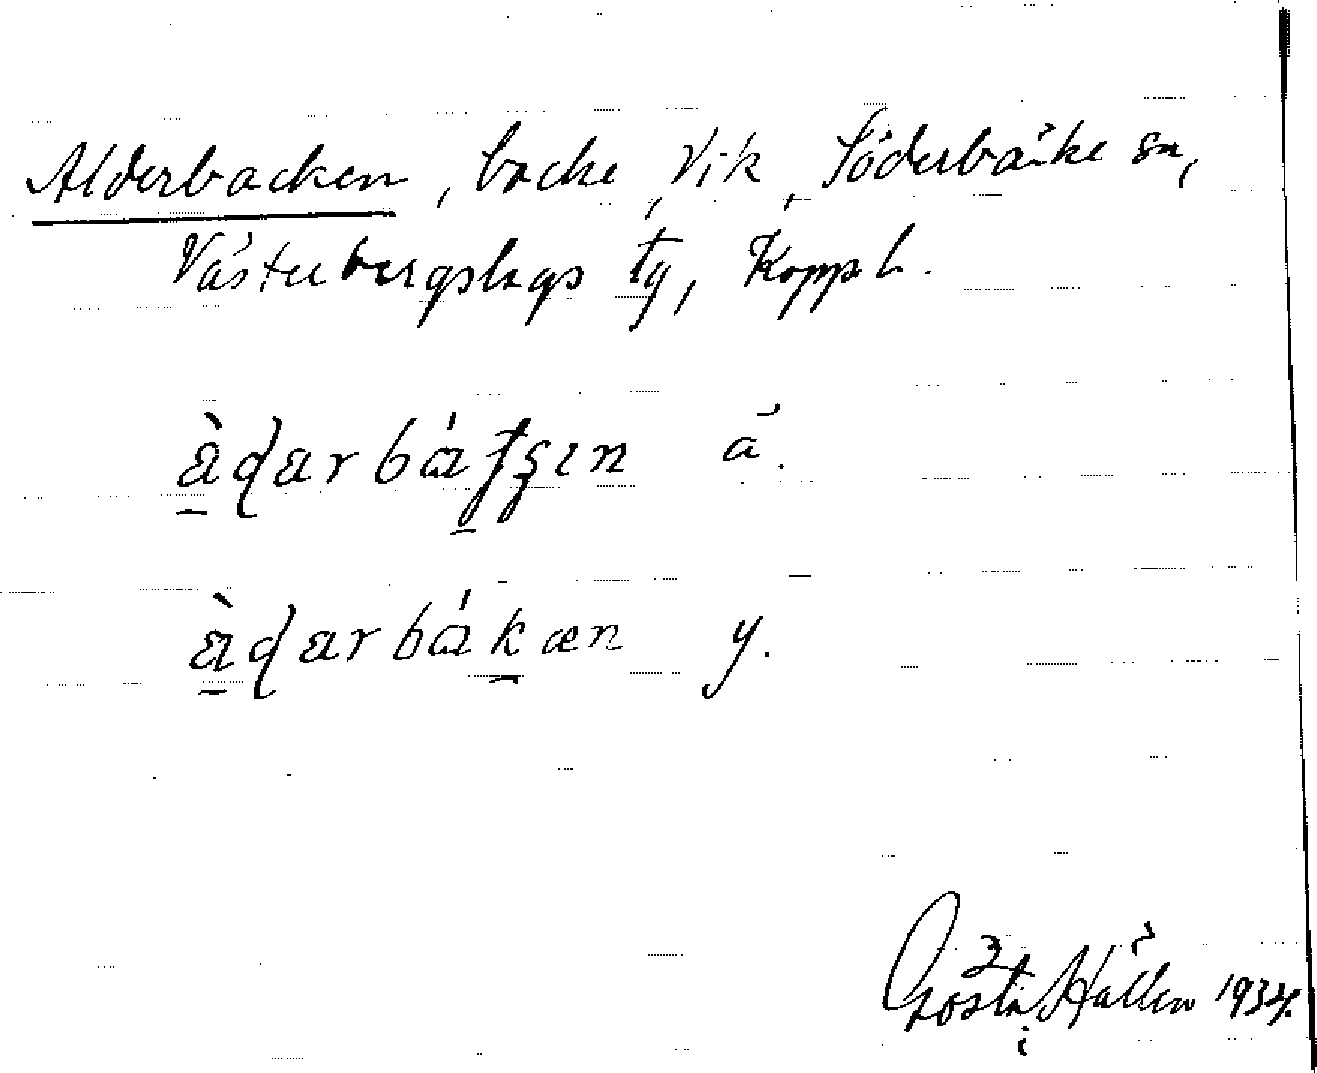 Alderbacken, backe, Vik, Söderbärke sn,
Västerbergslags tg, Kopp. l.
àd̨arbátʂɪn ä.
àd̨arbákæn y.
Gösta Hallén 1934.